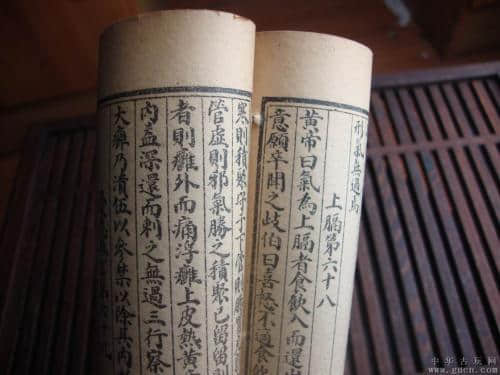 形氣無過焉
上膈第六十八
黃帝曰氣為上膈者食飲入而還
意願卒聞之岐伯曰喜怒不適食飲
寒則積聚守于下管則
管虛則邪氣勝之積聚已留留則
者則癰外而痛浮癰上皮熱黃帝
內益深還而刺之無過三行察
大癰乃潰伍以參禁以除其內
中华古玩网
www.gucn.com